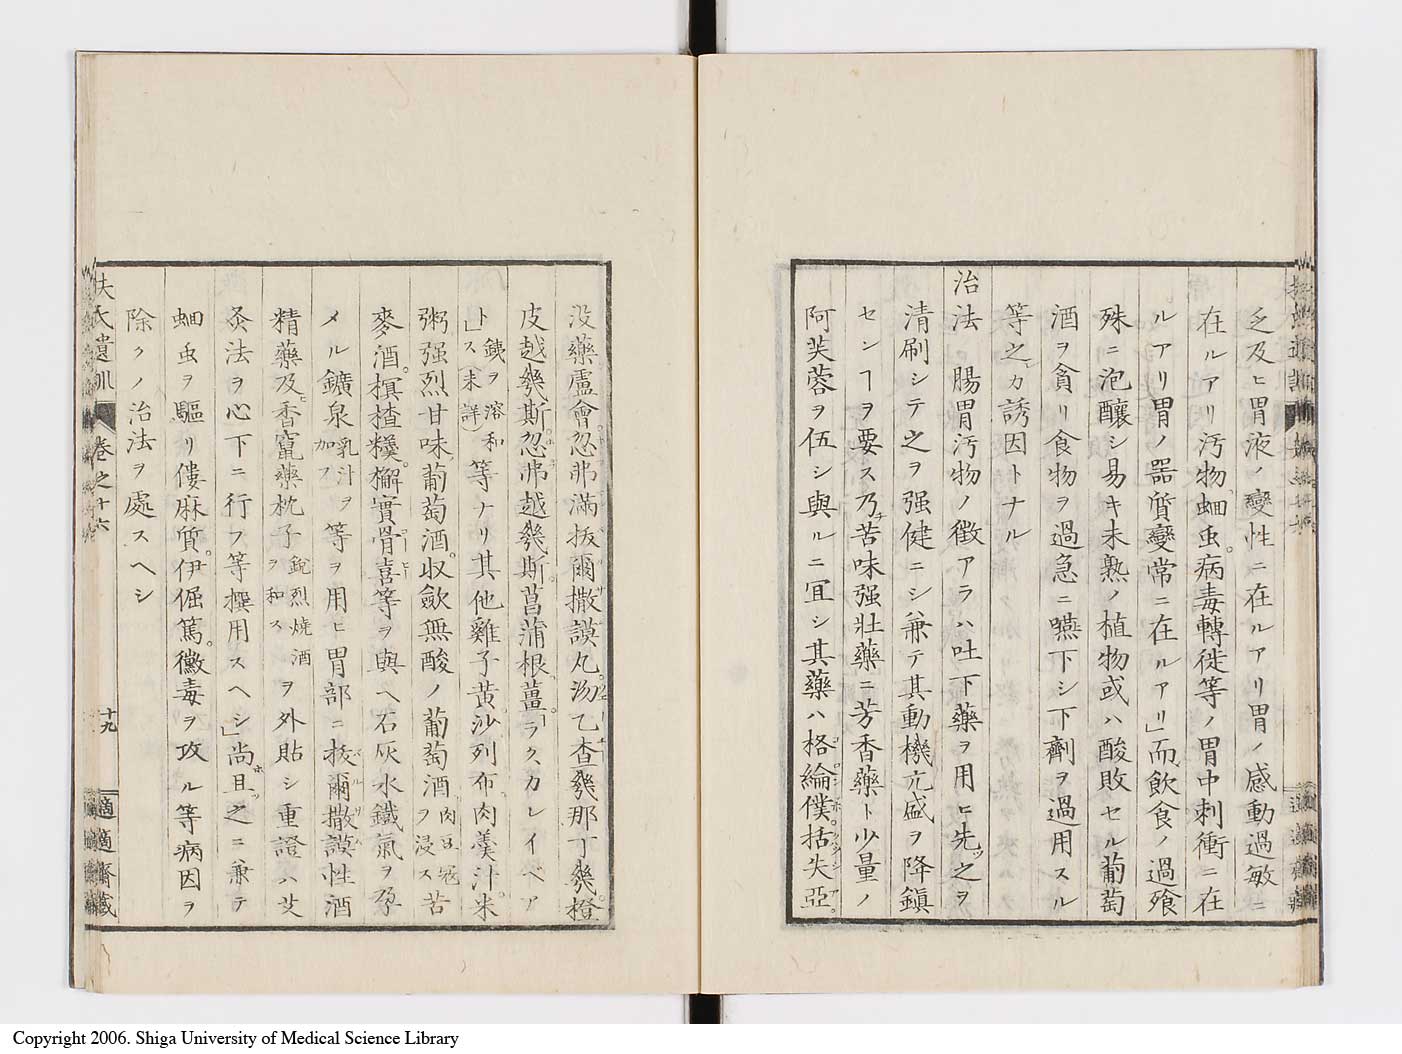 乏及ヒ胃液ノ變性ニ在ルアリ胃ノ感動過敏ニ
在ルアリ汚物蛔虫病毒轉徙等ノ胃中刺衝ニ在
ルアリ胃ノ器質變常ニ在ルアリ」而飲食ノ過飱
殊ニ泡釀シ易キ未熟ノ植物或ハ酸敗セル葡萄
酒ヲ貪リ食物ヲ過急ニ嚥下シ下劑ヲ過用スル
等之カ誘因トナル
治法 腸胃汚物ノ徴アラハ吐下藥ヲ用ヒ先ツ之ヲ
清刷シテ之ヲ强健ニシ兼テ其動機亢盛ヲ降鎭
センヿヲ要ス乃チ苦味强壯藥ニ芳香藥ト少量ノ
阿芙蓉ヲ伍シ與ルニ宜シ其藥ハ格綸僕括失亞
没藥盧會忽弗滿拔爾撒謨丸沕乙查幾那丁幾橙
皮越幾斯忽弗越幾斯菖蒲根薑「ラクカレイベア
ト」ス(未詳)銕溶和等ナリ其他雞子黄沙列布肉羹汁米
粥强烈甘味葡萄酒收歛無酸ノ葡萄酒肉豆冦ヲ浸ス苦
麥酒榠楂糗檞實骨喜等ヲ與ヘ石灰水鐵氣ヲ孕
メル鑛泉乳汁ヲ加フ等ヲ用ヒ胃部ニ拔爾撒謨性酒
精藥及ヒ香竄藥枕子鋭烈燒酒ヲ和スヲ外貼シ重證ハ芟
灸法ヲ心下ニ行フ等撰用スヘシ」尚且之ニ兼テ
蛔虫ヲ驅リ僂麻質伊倔篤黴毒ヲ攻ル等病因ヲ
除クノ治法ヲ處スヘシ
扶氏遺訓
卷之十六
十九
適適齋藏